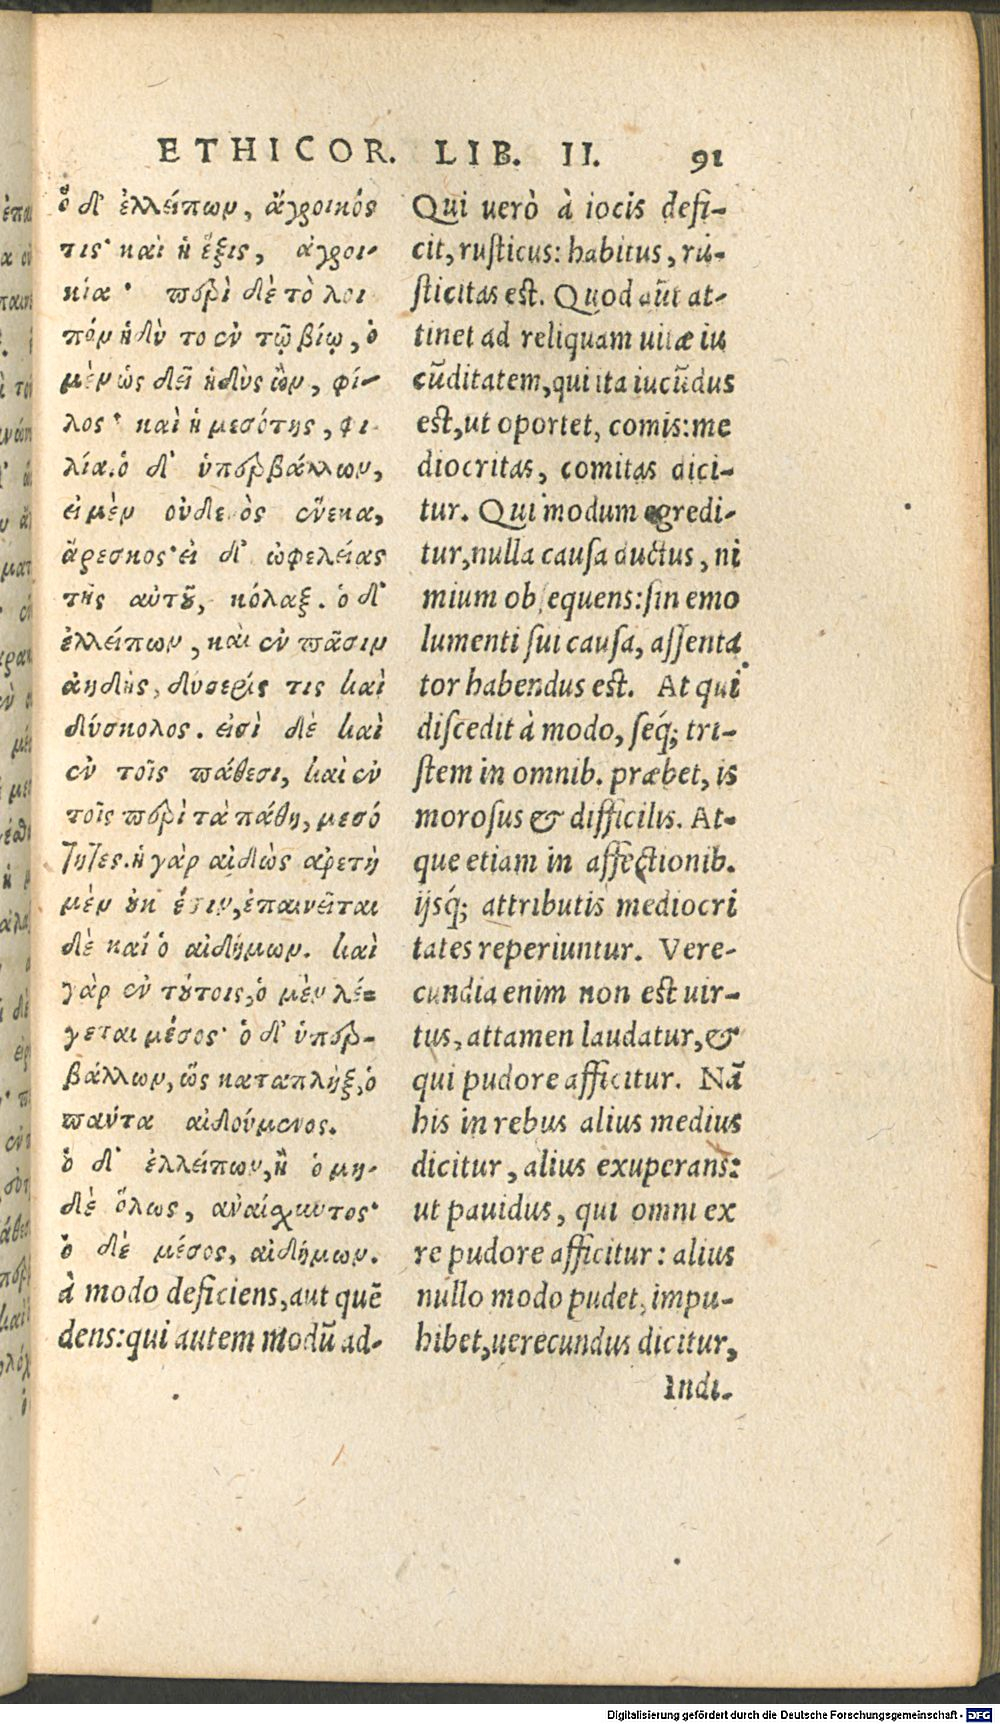 ETHICOR. LIB. II. 91
ὁ δ' ἐλλείπων, ἄγροικός
τις· καὶ ἡ ἕξις, ἀγροι-
κία· περὶ δὲ τὸ λοι
πὸν ἡδὺ τὸ ἐν τῷ βίῳ, ὁ
μὲν ὡς δεῖ ἡδὺς ὢν, φί-
λος· καὶ ἡ μεσότης, φι
λία. ὁ δ' ὑπερβάλλων,
εἰ μὲν οὐδενὸς ἕνεκα,
ἄρεσκος· εἰ δ' ὠφελείας
τῆς αὑτοῦ, κόλαξ. ὁ δ'
ἐλλείπων, καὶ ἐν πᾶσιν
ἀηδὴς, δύσερίς τις καὶ
δύσκολος. εἰσὶ δὲ καὶ
ἐν τοῖς πάθεσι, καὶ ἐν
τοῖς περὶ τὰ πάθη, μεσό
τητες. ἡ γὰρ αἰδὼς ἀρετὴ
μὲν οὐκ ἔστιν, ἐπαινεῖται
δὲ καὶ ὁ αἰδήμων. καὶ
γὰρ ἐν τούτοις, ὁ μὲν λέ=
γεται μέσος· ὁ δ' ὑπερ-
βάλλων, ὡς καταπλὴξ, ὁ
πάντα αἰδούμενος.
ὁ δ' ἐλλείπων, ἢ ὁ μη-
δὲ ὅλως, ἀναίσχυντος·
ὁ δὲ μέσος, αἰδήμων.
à modo deficiens, aut quē
dens: qui autem modū ad-
Qui uerò à iocis defi-
cit, rusticus: habitus, ru-
sticitas est. Quod aūt at-
tinet ad reliquam uitæ iu
cūditatem, qui ita iucūdus
est, ut oportet, comis: me
diocritas, comitas dici-
tur. Qui modum egredi-
tur, nulla causa ductus, ni
mium obsequens: sin emo
lumenti sui causa, assenta
tor habendus est. At qui
discedit à modo, seq́; tri-
stem in omnib. præbet, is
morosus & difficilis. At-
que etiam in affectionib.
ijsq́; attributis mediocri
tates reperiuntur. Vere-
cundia enim non est uir-
tus, attamen laudatur, &
qui pudore afficitur. Nā
his in rebus alius medius
dicitur, alius exuperans:
ut pauidus, qui omni ex
re pudore afficitur: alius
nullo modo pudet, impu-
hibet, uerecundus dicitur,
Indi-
Digitalisierung gefördert durch die Deutsche Forschungsgemeinschaft - DFG